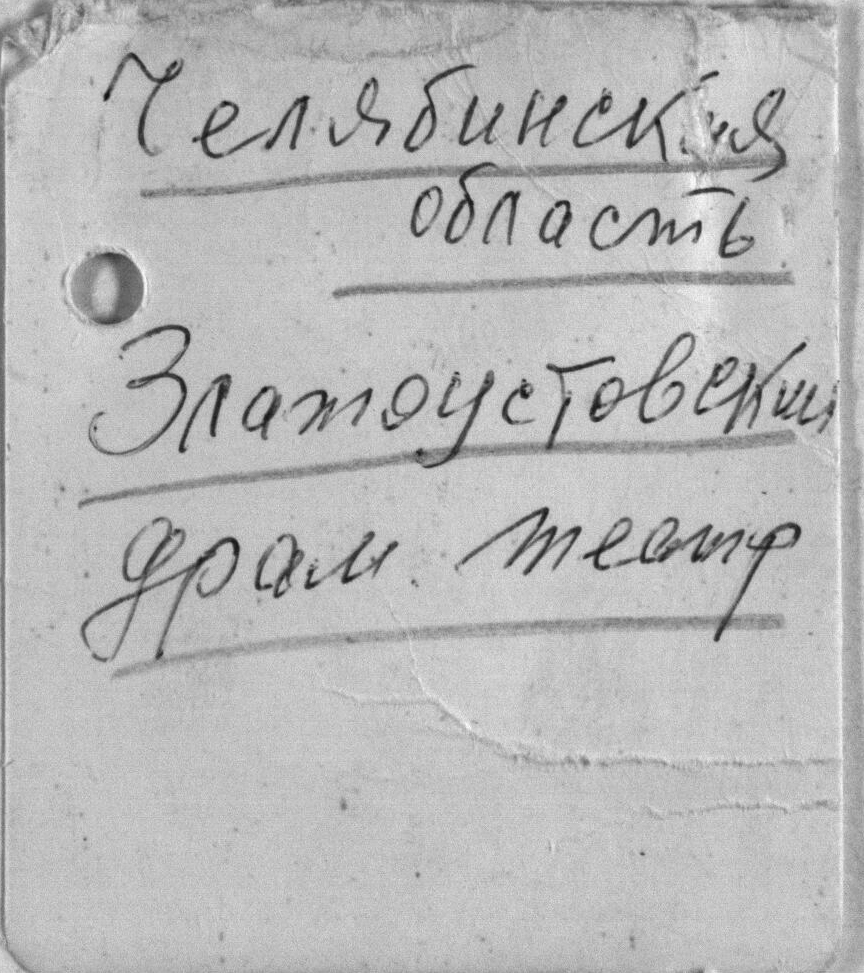 Челябинская
область
Златоустовский
драм. театр